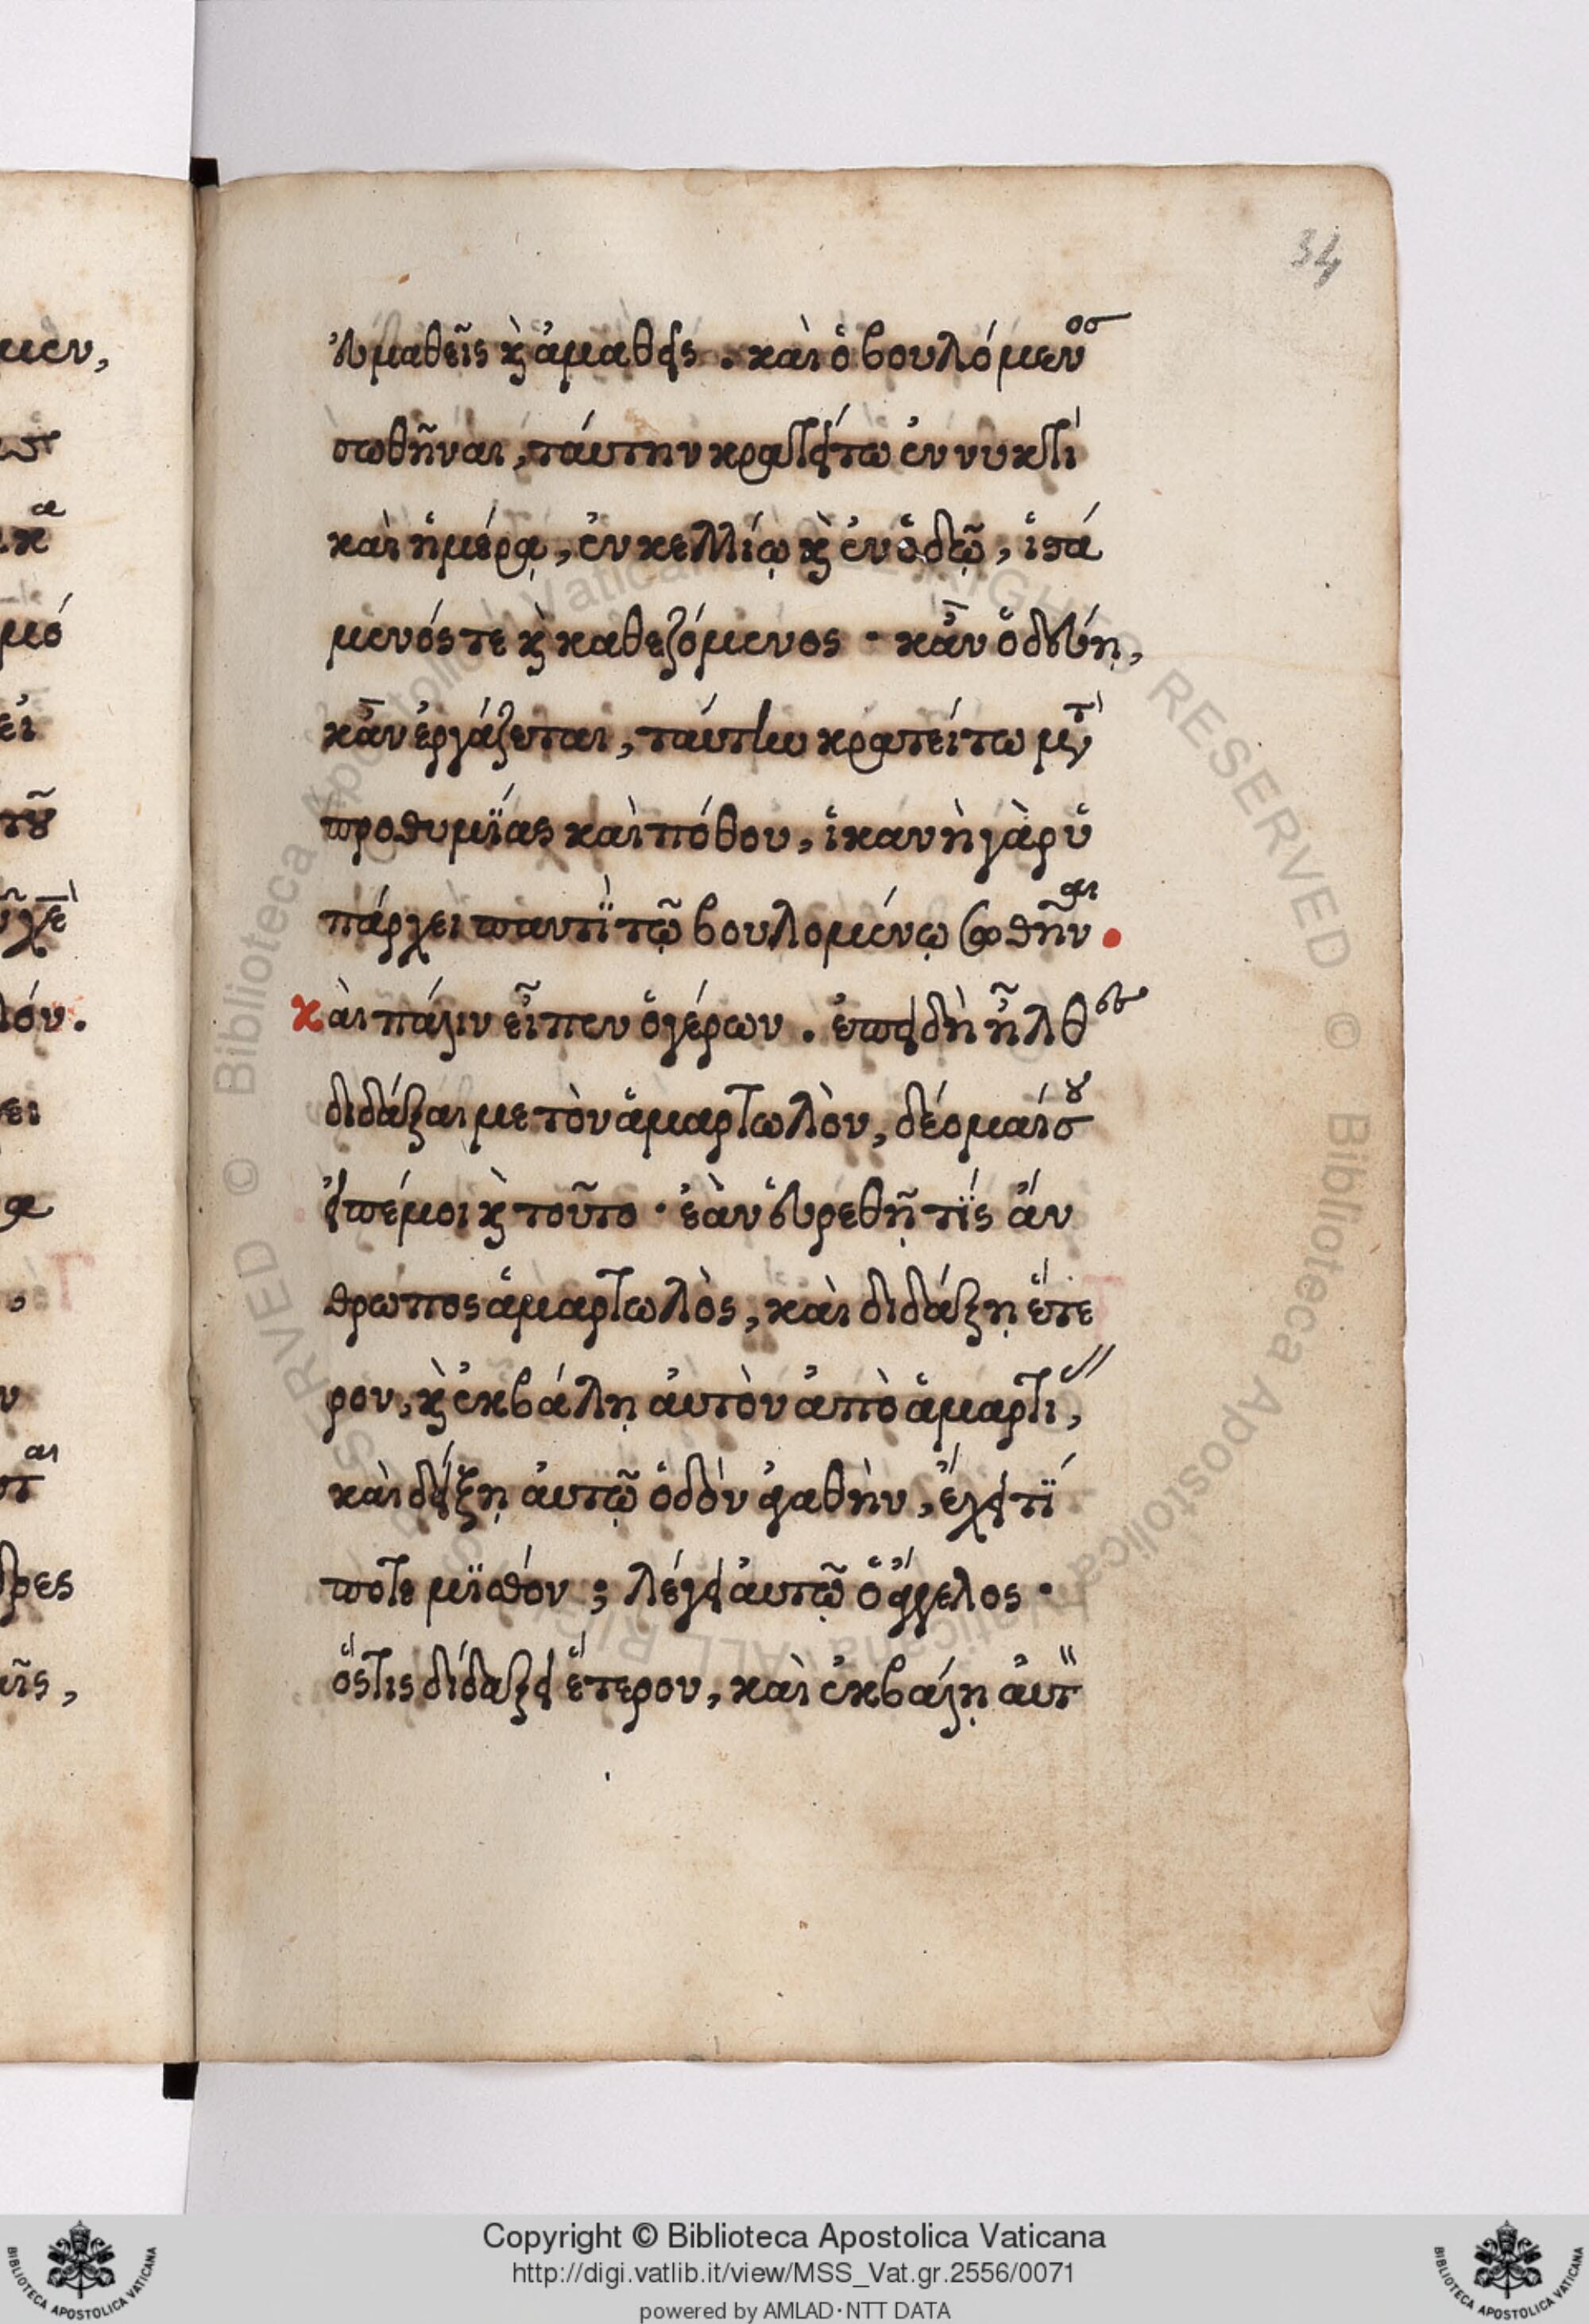 34
εὐμαθεῖς κὰι ἀμαθεῖς. κὰι ὁ βουλόμενος
σωθῆναι, ταύτην κρατείτω ἐν νυκτὶ
κὰι ἡμέρᾳ, ἐν κελλίῳ κὰι ἐν ὁδῷ, ἱστά
μενός τε κὰι καθεζόμενος · κἂν ὁδεύῃ,
κἂν ἐργάζεται, ταύτην κρατείτω μετὰ
προθυμΐας κὰι πόθου, ἱκανὴ γὰρ ὑ
πάρχει παντῒ τῷ βουλομένῳ σωθῆναι.
κὰι πάλιν εἶπεν ὁ γέρων. ἐπειδὴ ἦλθες
διδάξαι με τὸν ἁμαρτωλὸν, δέομαί σου
εἰπέ μοι κὰι τοῦτο · ἐὰν εὑρεθῇ τΐς ἄν
θρωπος ἁμαρτωλὸς, κὰι διδάξῃ ἕτε
ρον, κὰι ἐκβάλῃ ἀυτὸν ἀπὸ ἁμαρτίας,
κὰι δείξῃ ἀυτῷ ὁδὸν ἀγαθὴν, ἔχει τΐ
ποτε μϊσθόν; λέγει ἀυτῷ ὁ ἄγγελος ·
ὅστις διδάξει ἕτερον, κὰι ἐκβάλῃ ἀυτὸν
μεν,
μό
ει
λόν.
ει
ν
Copyright © Biblioteca Apostolica Vaticana
http://digi.vatlib.it/view/MSS_Vat.gr.2556/0071
powered by AMLAD·NTT DATA
BIBLIOTECA APOSTOLICA VATICANA
BIBLIOTECA APOSTOLICA VATICANA